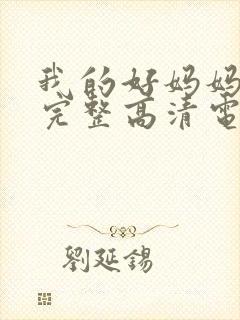 我的好妈妈
完整高清电
劉延錫